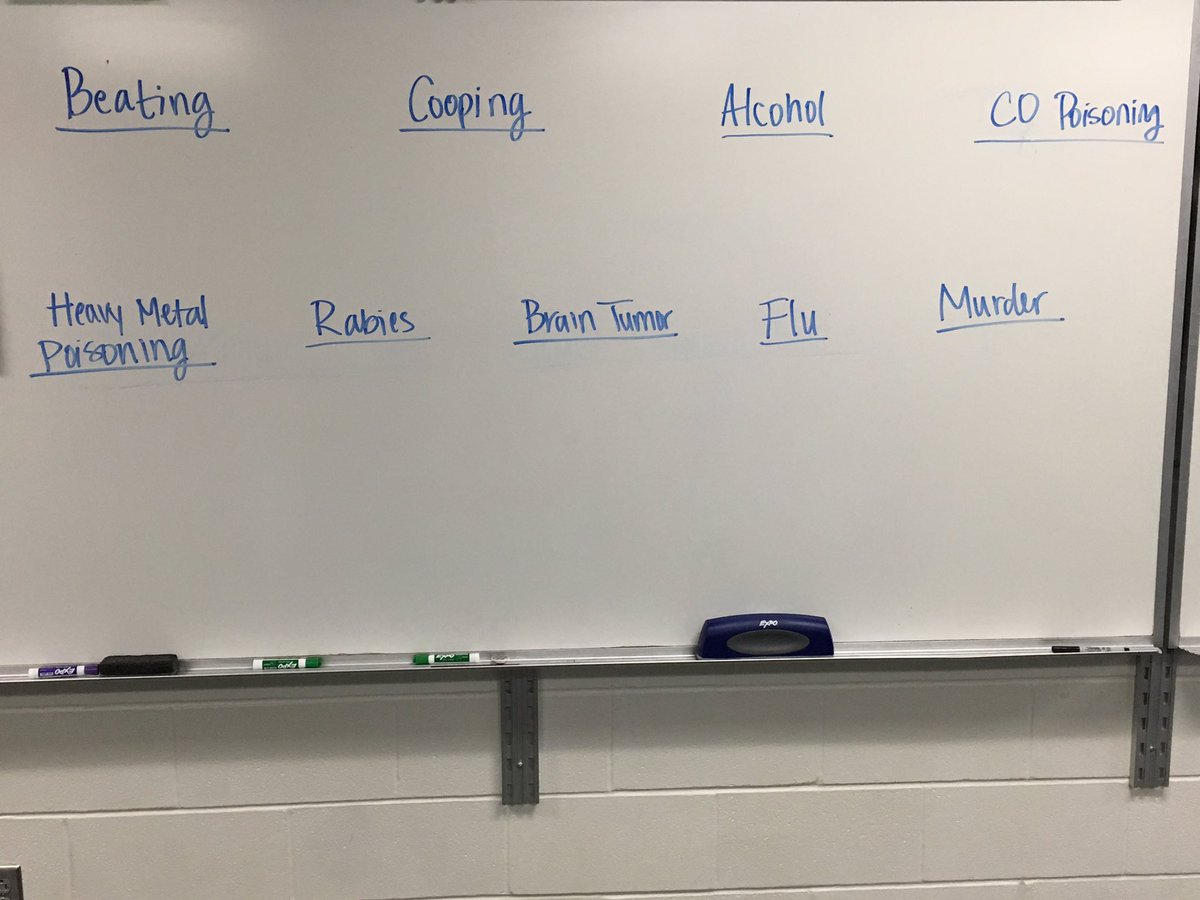 Beating Cooping Alcohol CO Poisoning
Heavy Metal Poisoning Rabies Brain Tumor Flu Murder
EXPO EXPO EXPO EXPO